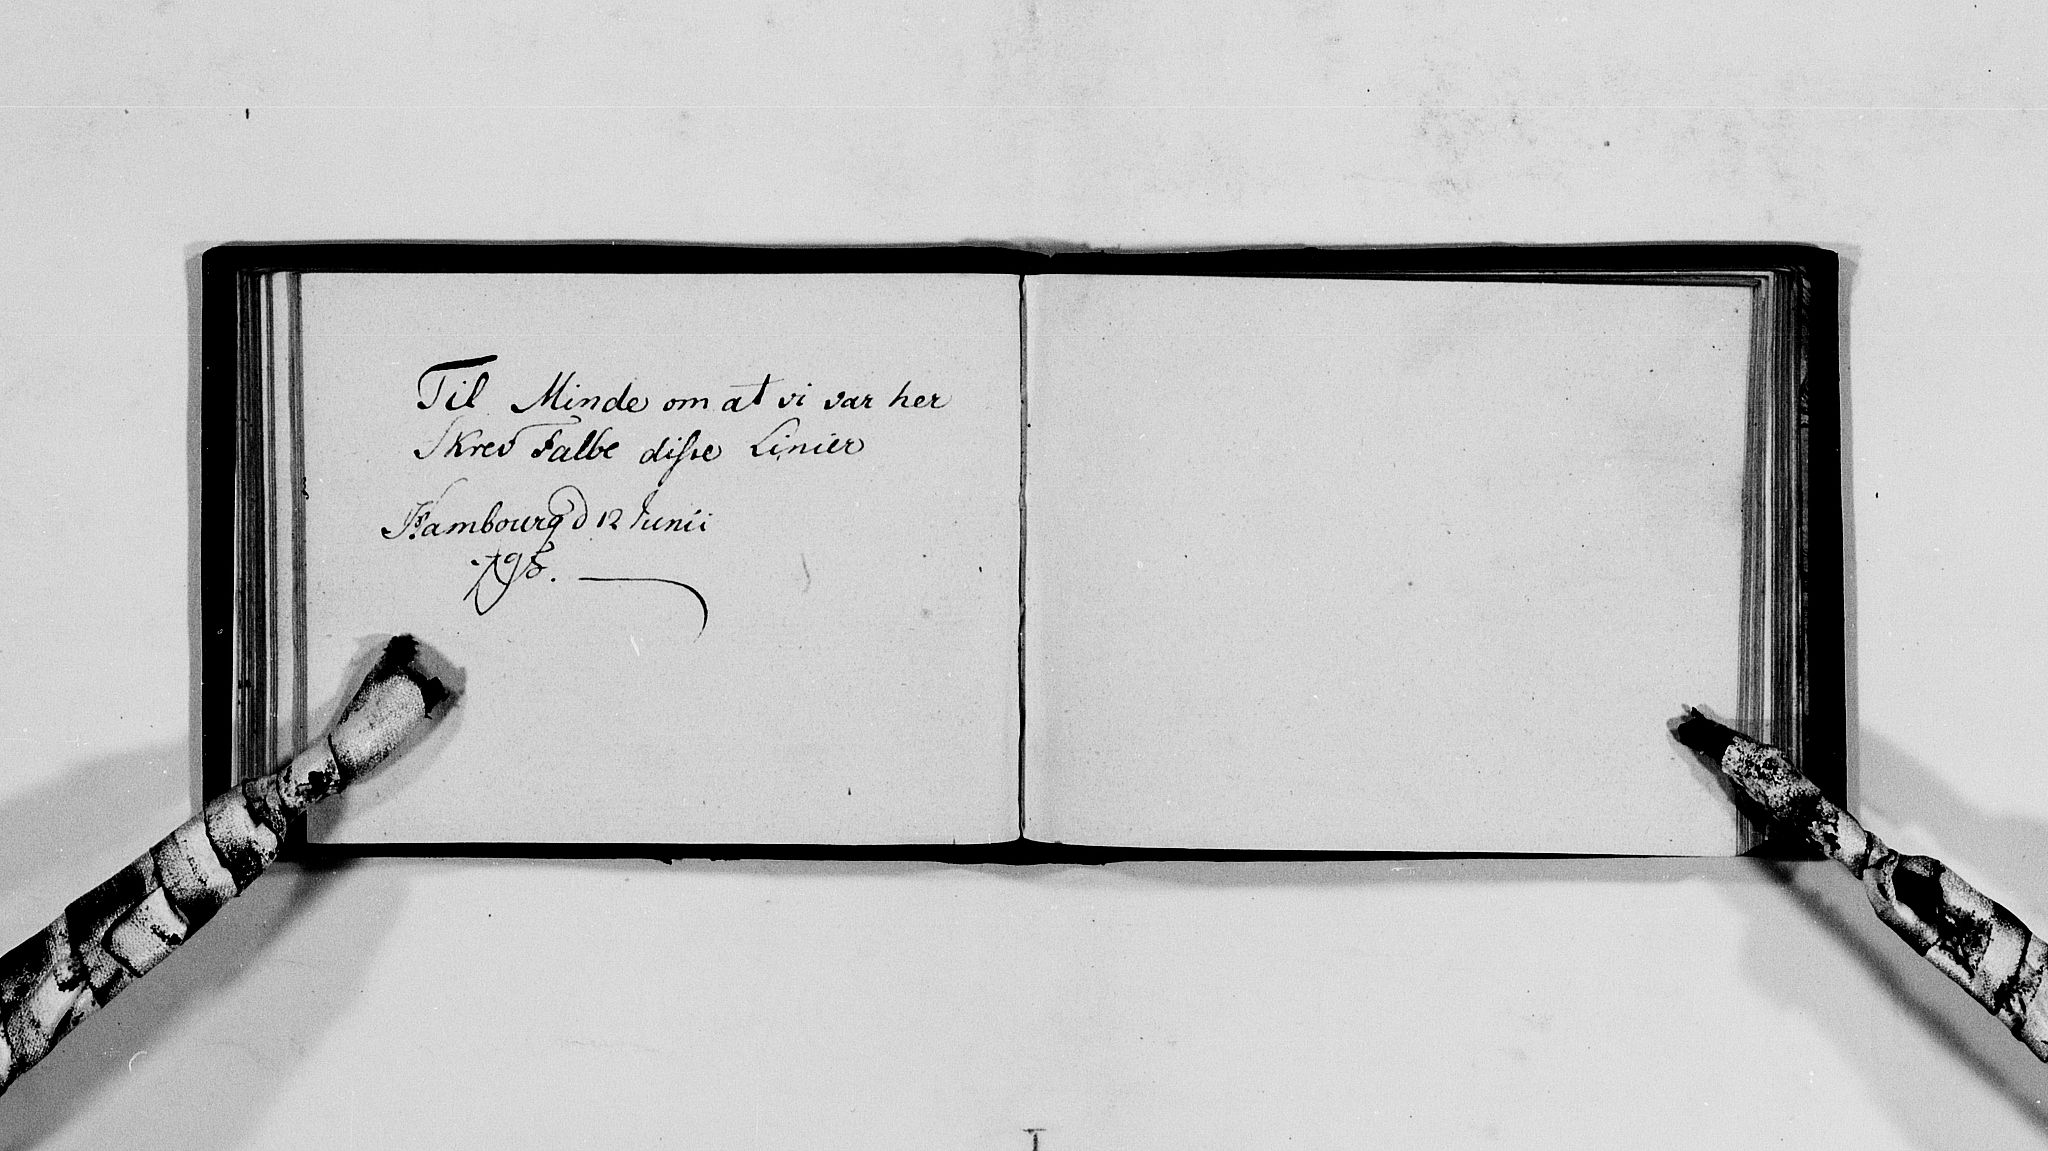 Til Minde om at vi var her
Skrev Falbe disse Linier
Hambourg d 12 Junii
1795.